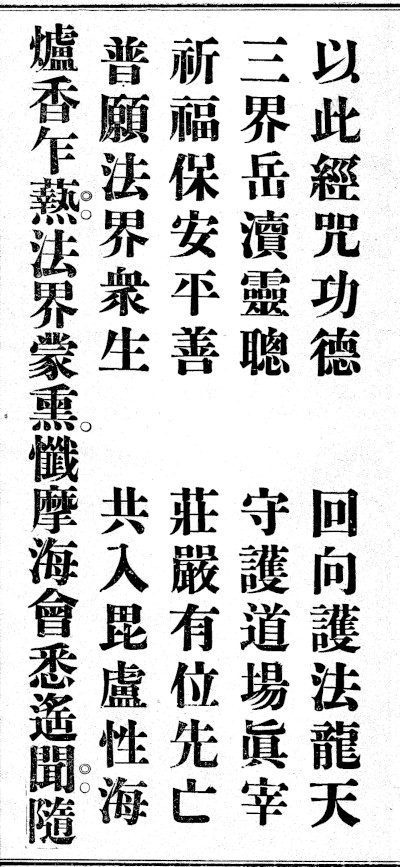 以此經咒功德　回向護法龍天
三界岳瀆靈聰　守護道場眞宰
祈福保安平善　莊嚴有位先亡
普願法界衆生　共入毘盧性海
爐香乍爇。。法界蒙熏。懺摩海會悉遙聞。。隨